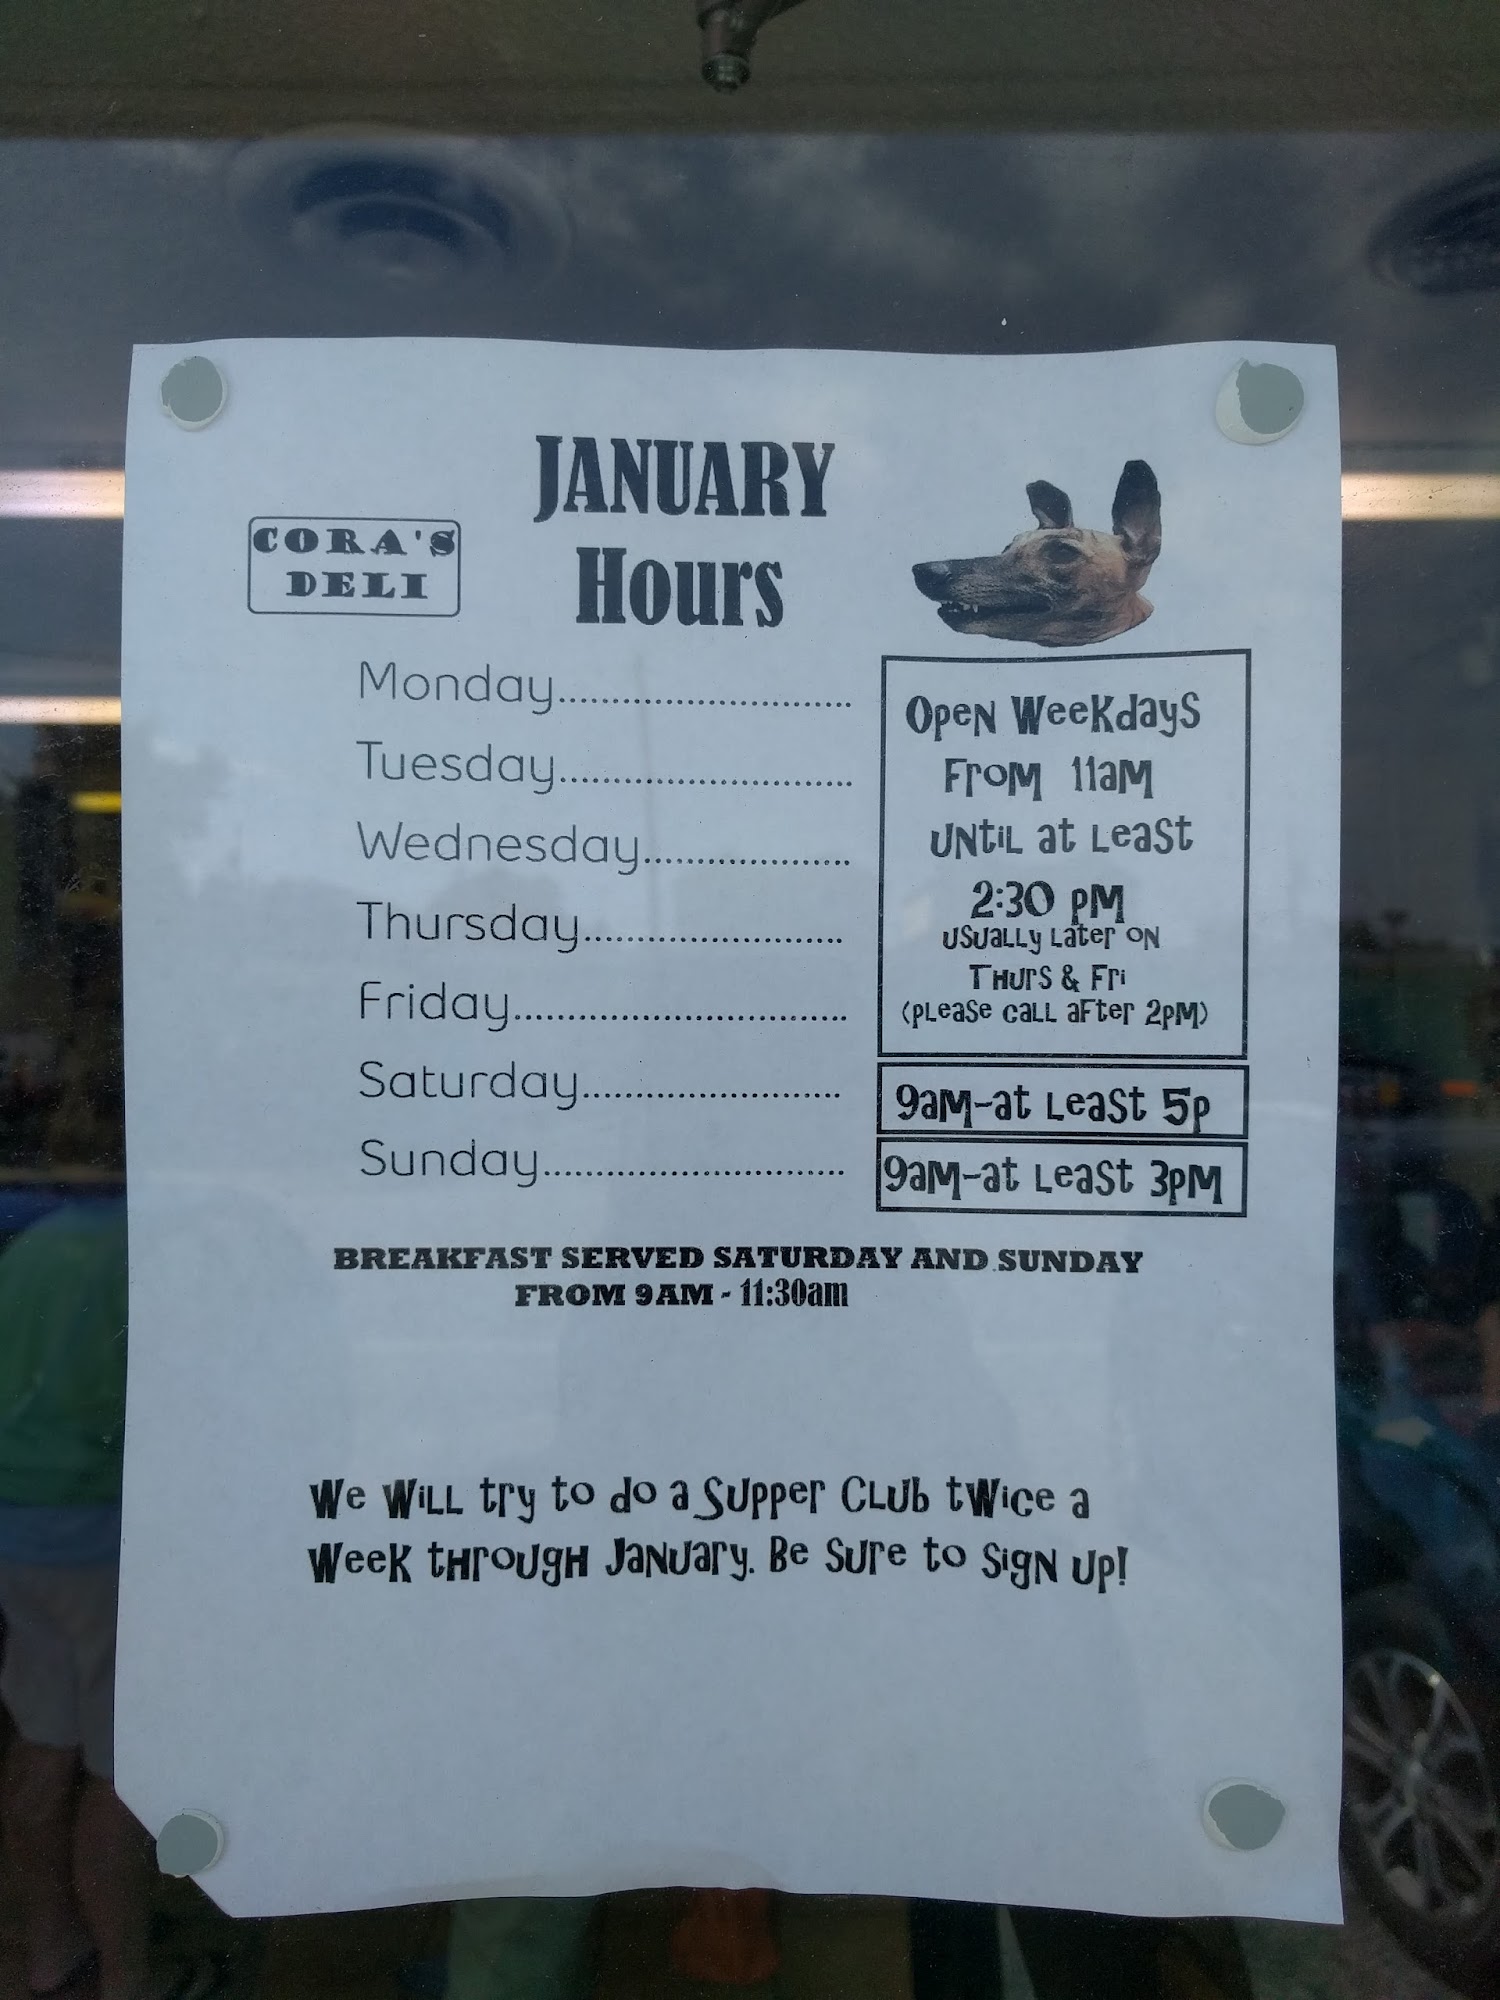 JANUARY
Hours
CORA'S
DELI
Monday...........................
Tuesday...........................
Wednesday...................
Thursday........................
Friday...............................
Saturday........................
Sunday............................
Open Weekdays
From 11am
Until at Least
2:30 pm
Usually Later on
Thurs & Fri
(Please call after 2pm)
9am-at Least 5p
9am-at Least 3pm
BREAKFAST SERVED SATURDAY AND SUNDAY
FROM 9AM - 11:30am
We will try to do a Supper Club twice a
week through January. Be sure to sign up!